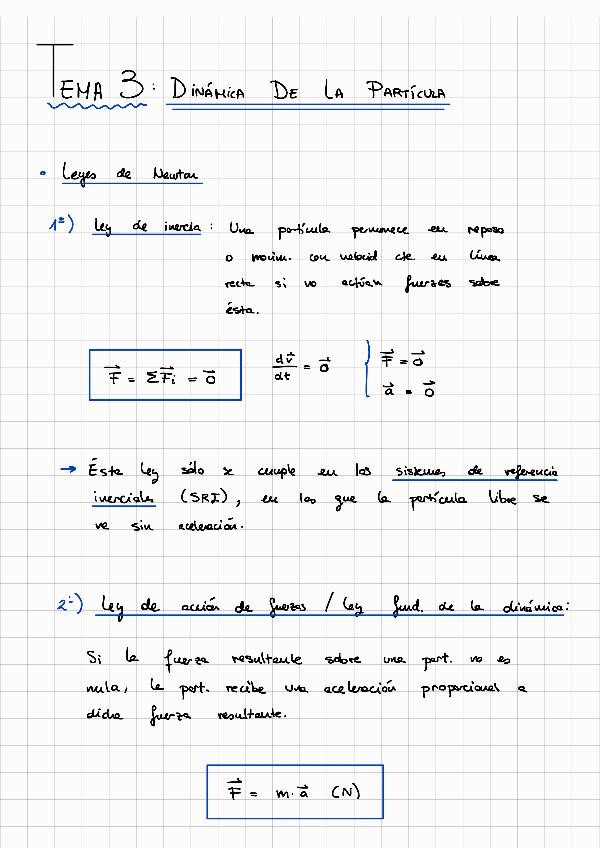 TEMA 3: DINÁMICA DE LA PARTÍCULA
• Leyes de Newton
1ª) Ley de inercia: Una partícula permanece en reposo
o movim. con velocid cte en línea
recta si no actúan fuerzas sobre
ésta.
F⃗ = ΣF⃗i = 0⃗   dv⃗/dt = 0⃗   { F⃗ = 0⃗
a⃗ = 0⃗
→ Ésta ley sólo se cumple en los sistemas de referencia
inerciales (SRI), en los que la partícula libre se
ve sin aceleración.
2ª) Ley de acción de fuerzas / Ley fund. de la dinámica:
Si la fuerza resultante sobre una part. no es
nula, la part. recibe una aceleración proporcional a
dicha fuerza resultante.
F⃗ = m·a⃗ (N)